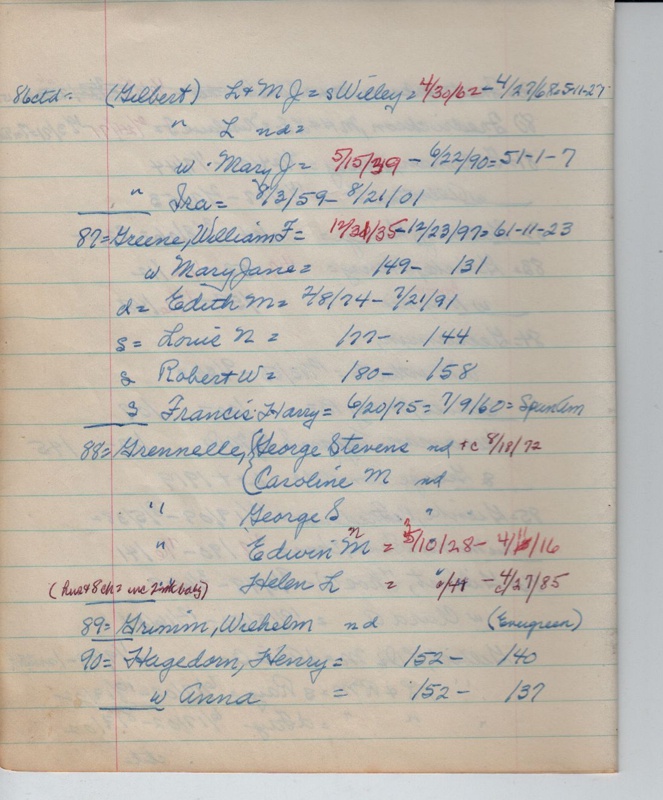 86ctd:- (Gilbert) L + M J = s Willey = 4/30/62 - 4/27/68 = 5-11-27
" L nd =
w. Mary J = 5/15/39 - 6/22/90 = 51-1-7
" Ira = 8/3/59 - 8/21/01
87 = Greene, William F = 12/31/35 - 12/23/97 = 61-11-23
w Mary Jane = 149 - 131
d = Edith M = 2/8/74 - 7/21/91
s = Louie N = 177 - 144
s Robert W = 180 - 158
s Francis Harry = 6/20/75 = 7/9/60 = Span Am
88 = Grennelle, {George Stevens nd + c 8/18/72
{Caroline M nd
" George S "
" Edwin M = 3/10/28 - 4/16/16
Helen L = - 4/27/85
89 = Grimm, Wilhelm nd (Evergreen)
90 = Hagedorn, Henry = 152 - 140
w Anna = 152 - 137